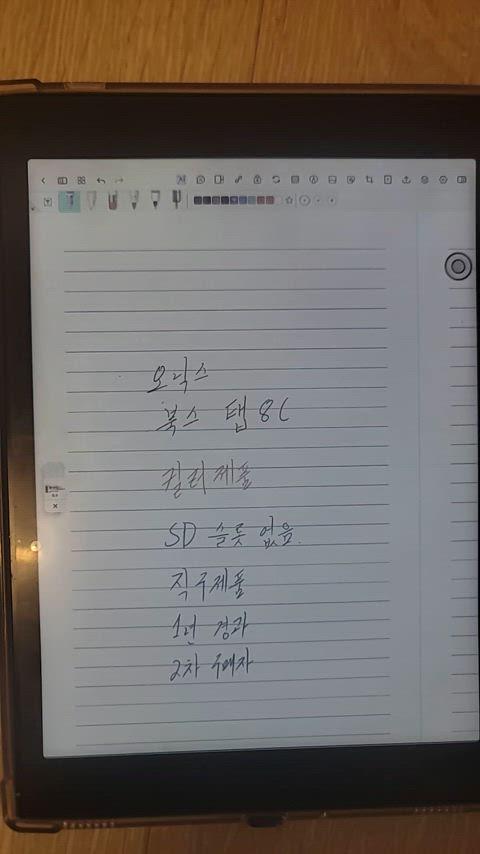 오닉스
북스 탭 8C
컬러제품
SD 슬롯 없음.
직구제품
1년 경과
2차 구매자